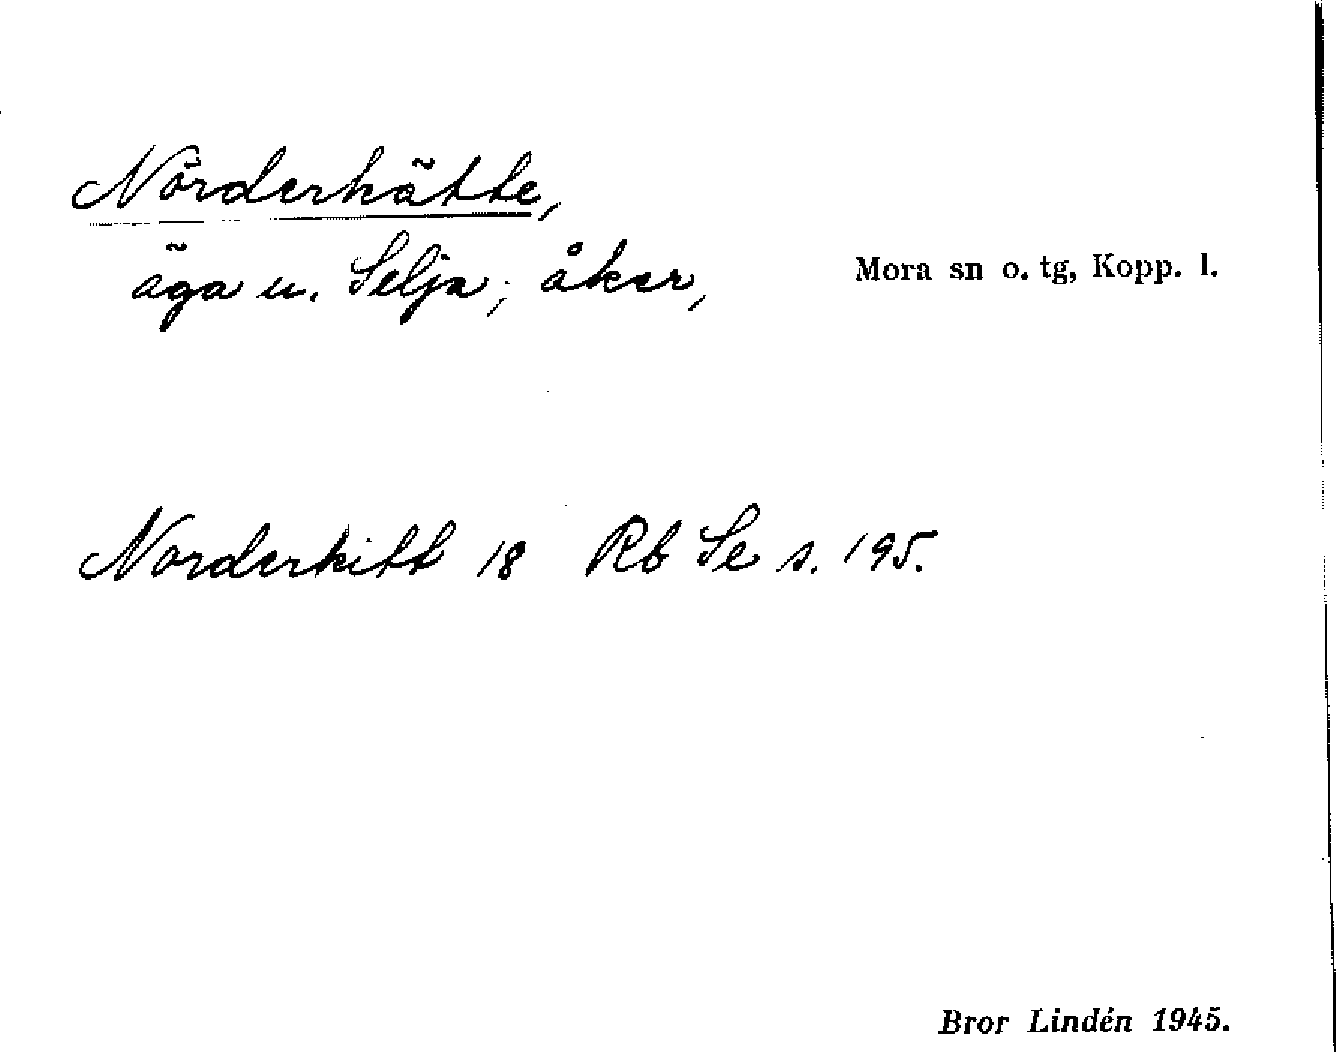 Nörderhätte,
äga u. Selja; åker,
Mora sn o. tg, Kopp. l.
Norderhitt 18 Rb Se s. 195.
Bror Lindén 1945.